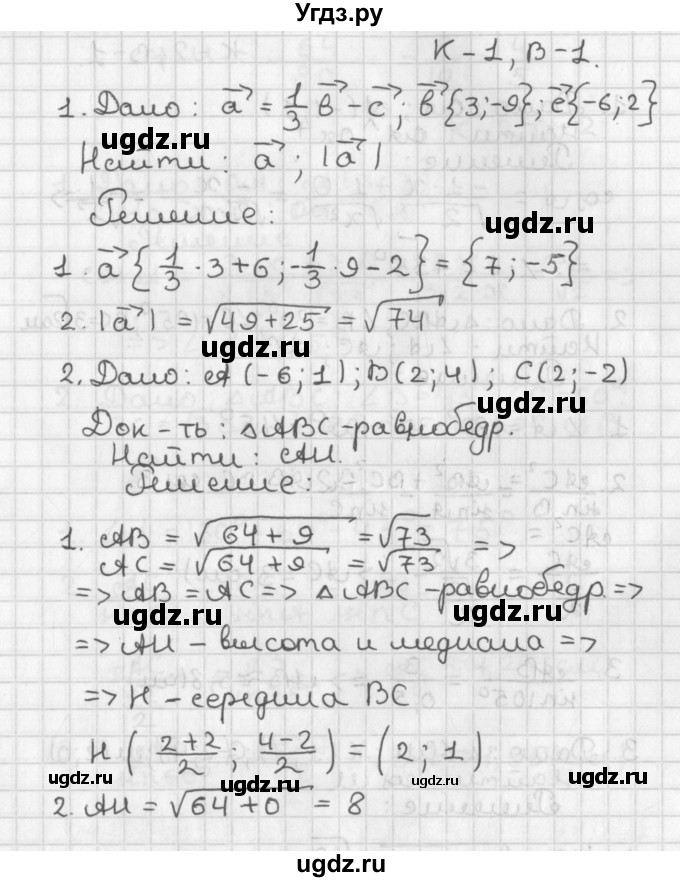 Угдз.ру
К-1, В-1.
1. Дано: a⃗ = 1/3 в⃗ - c⃗; в⃗{3;-9}; c⃗{-6;2}
ugdz.ru
Найти: a⃗; |a⃗|
Решение:
ugdz.ru
1. a⃗{1/3 · 3+6; -1/3 · 9-2} = {7; -5}
ugdz.ru
2. |a⃗| = √49+25 = √74
2. Дано: A(-6;1); B(2;4); C(2;-2)
ugdz.ru
Док-ть: △ABC-равнобедр.
Найти: AH.
Решение:
1. AB = √64+9 = √73
AC = √64+9 = √73 =>
=> AB = AC => △ABC-равнобедр. =>
ugdz.ru ugdz.ru
=> AH - высота и медиана =>
=> H - середина BC
H(2+2/2; 4-2/2) = (2; 1)
ugdz.ru ugdz.ru ugdz.ru ugdz.ru
2. AH = √64+0 = 8
ugdz.ru